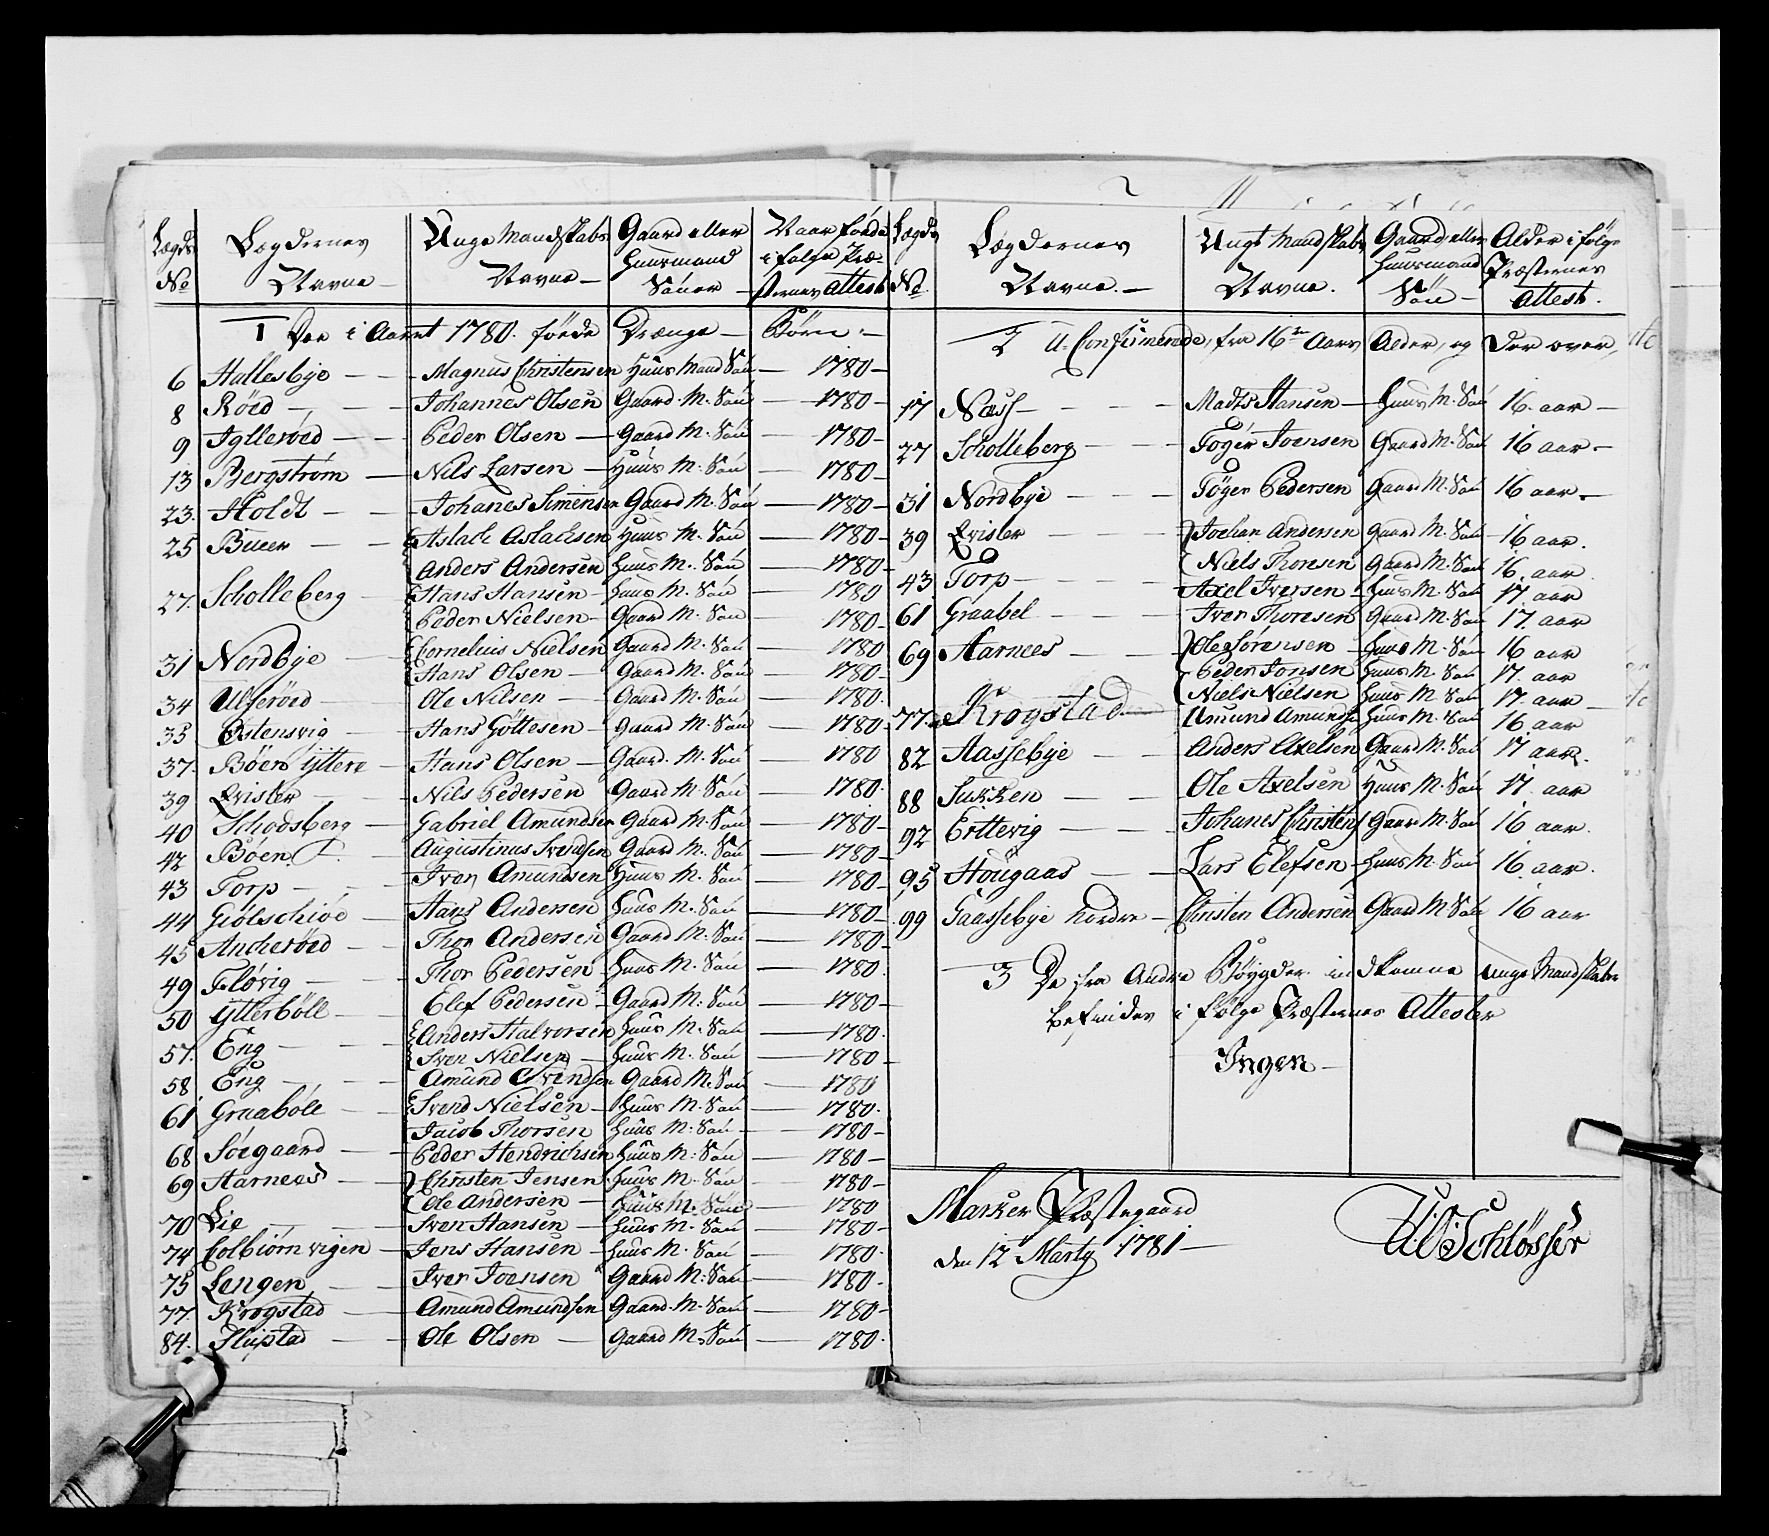 Lægds No | Lægdernes Navne | Unge Mandskabs Navne | Gaard eller Huusmand Sönner | Naar födde i følge Præsternes Attest
1 Dee i Aaret 1780 födde Drænge Börn
6 Hallesbye Magnus Christensen Huus Mand Sön 1780
8 Röed Johannes Olsen Gaard M. Sön 1780
9 Iglleröed Peder Olsen Gaard M. Sön 1780
13 Bergström Nils Larsen Huus M. Sön 1780
23. Holdt Johanes Simensen Gaard M. Sön 1780
25 Bueer Aslack Aslachsen Huus M. Sön 1780
Anders Andersen Huus M. Sön 1780
27. Scholleberg Hans Hansen Huus M. Sön 1780
Peder Nielsen Gaard M. Sön 1780
31 Nordbye Cornelius Nielsen Gaard M. Sön 1780
Hans Olsen Gaard M. Sön 1780
34 Ulferöed Ole Nilsen Gaard M. Sön 1780
35 Östensvig Hans Göttesen Gaard M. Sön 1780
37. Böen Yttere Hans Olsen Gaard. M. Sön 1780
39 Qvisler Nils Pedersen Gaard M. Sön 1780
40 Schodsberg Gabriel Amundsen Gaard M. Sön 1780
42 Böen Augustinus Svendsen Gaard M. Sön 1780
43 Torp Iver Amundsen Huus M. Sön 1780
44 Giölschiöe Hans Andersen Huus M. Sön 1780
45 Ancheröed Thor Andersen Gaard M. Sön 1780
49 Flövig Thor Pedersen Huus M. Sön 1780
50 Ytterböll Elef Pedersen Gaard M. Sön 1780
57. Eng Anders Halvorsen Huus M. Sön 1780
Sven Nielsen Huus M. Sön 1780
58 Eng Amund Svendsen Gaard M. Sön 1780
61 Graaböle Svend Nielsen Huus M. Sön 1780
Jacob Thorsen Huus M. Sön 1780
68 Söegaard Peder Hendrichsen Huus M. Sön 1780
69 Aarnees Christen Jensen Huus M. Sön 1780
Ole Andersen Huus M. Sön 1780
70 Lie Sven Hansen Huus M. Sön 1780
74 Colbiörnvigen Jens Hansen Huus M. Sön 1780
75 Lengen Iver Joensen Gaard M. Sön 1780
77. Krogstad Amund Amundsen Gaard M. Sön 1780
84. Slupstad Ole Olsen Gaard M. Sön 1780
Lægds No. | Lægdernes Navne. | Ungt Mandskabs Navne. | Gaard eller Huusmand Sön | Alder i følge Præsternes Attest.
2 U-Confirmerede, fra 16ten Aars Alder, og Der over,
17 Næss Madts Hansen Huus M. Sön 16. aar
27 Scholleberg Töger Joensen Gaard M. Sön 16 aar
31 Nordbye Töger Pedersen Gaard M. Sön 16 aar
39 Qvisler Jochan Andersen Gaard M. Sön 16 aar.
Niels Thoresen Gaard M. Sön 16. aar
43 Torp Axel Iversen Huus M. Sön 17. aar
61 Graabel Iver Thoresen Gaard M. Sön 17. aar
69 Aarnees Ole Sörensen Huus M. Sön 16 aar
Peder Jonsen Huus M. Sön 17. aar
Niels Nielsen Huus M. Sön 17. aar
77. Krogstad Amund Amundsen Huus M. Sön 16 aar
82 Aassebye Anders Axelsen Gaard M. Sön 17 aar.
88 Sukken Ole Axelsen Huus M. Sön 17. aar
92 Ertevig Johanes Christens Gaard M. Sön 16 aar.
95 Hougaas Lars Elefsen Huus M. Sön 16. aar.
99 Taassebye Nordre Christen Andersen Gaard M Sön 16 aar
3 De fra Andre Böygder indkomne unge Mandskaber
befindes i følge Præsternes Attester
Ingen
Marker Præstegaard
den 12 Marty 1781
Schlösser